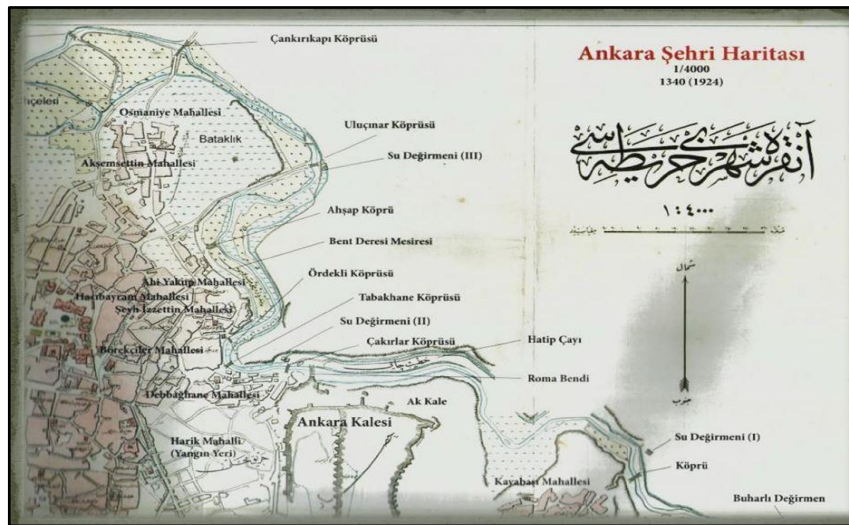 Ankara Şehri Haritası
1/4000
1340 (1924)
آنقره شهری خریطه سی
١:٤٠٠٠
شمال
جنوب
Çankırıkapı Köprüsü
hçeleri
Osmaniye Mahallesi
Bataklık
Uluçınar Köprüsü
Akşemsettin Mahallesi
Su Değirmeni (III)
Ahşap Köprü
Bent Deresi Mesiresi
Ördekli Köprüsü
Ahi Yakup Mahallesi
Hacıbayram Mahallesi
Şeyh İzzettin Mahallesi
Tabakhane Köprüsü
Su Değirmeni (II)
Çakırlar Köprüsü
Hatip Çayı
Börekçiler Mahallesi
Roma Bendi
Debbağhane Mahallesi
Ak Kale
Ankara Kalesi
Harik Mahalli
(Yangın Yeri)
Su Değirmeni (I)
Köprü
Kayabaşı Mahallesi
Buharlı Değirmen